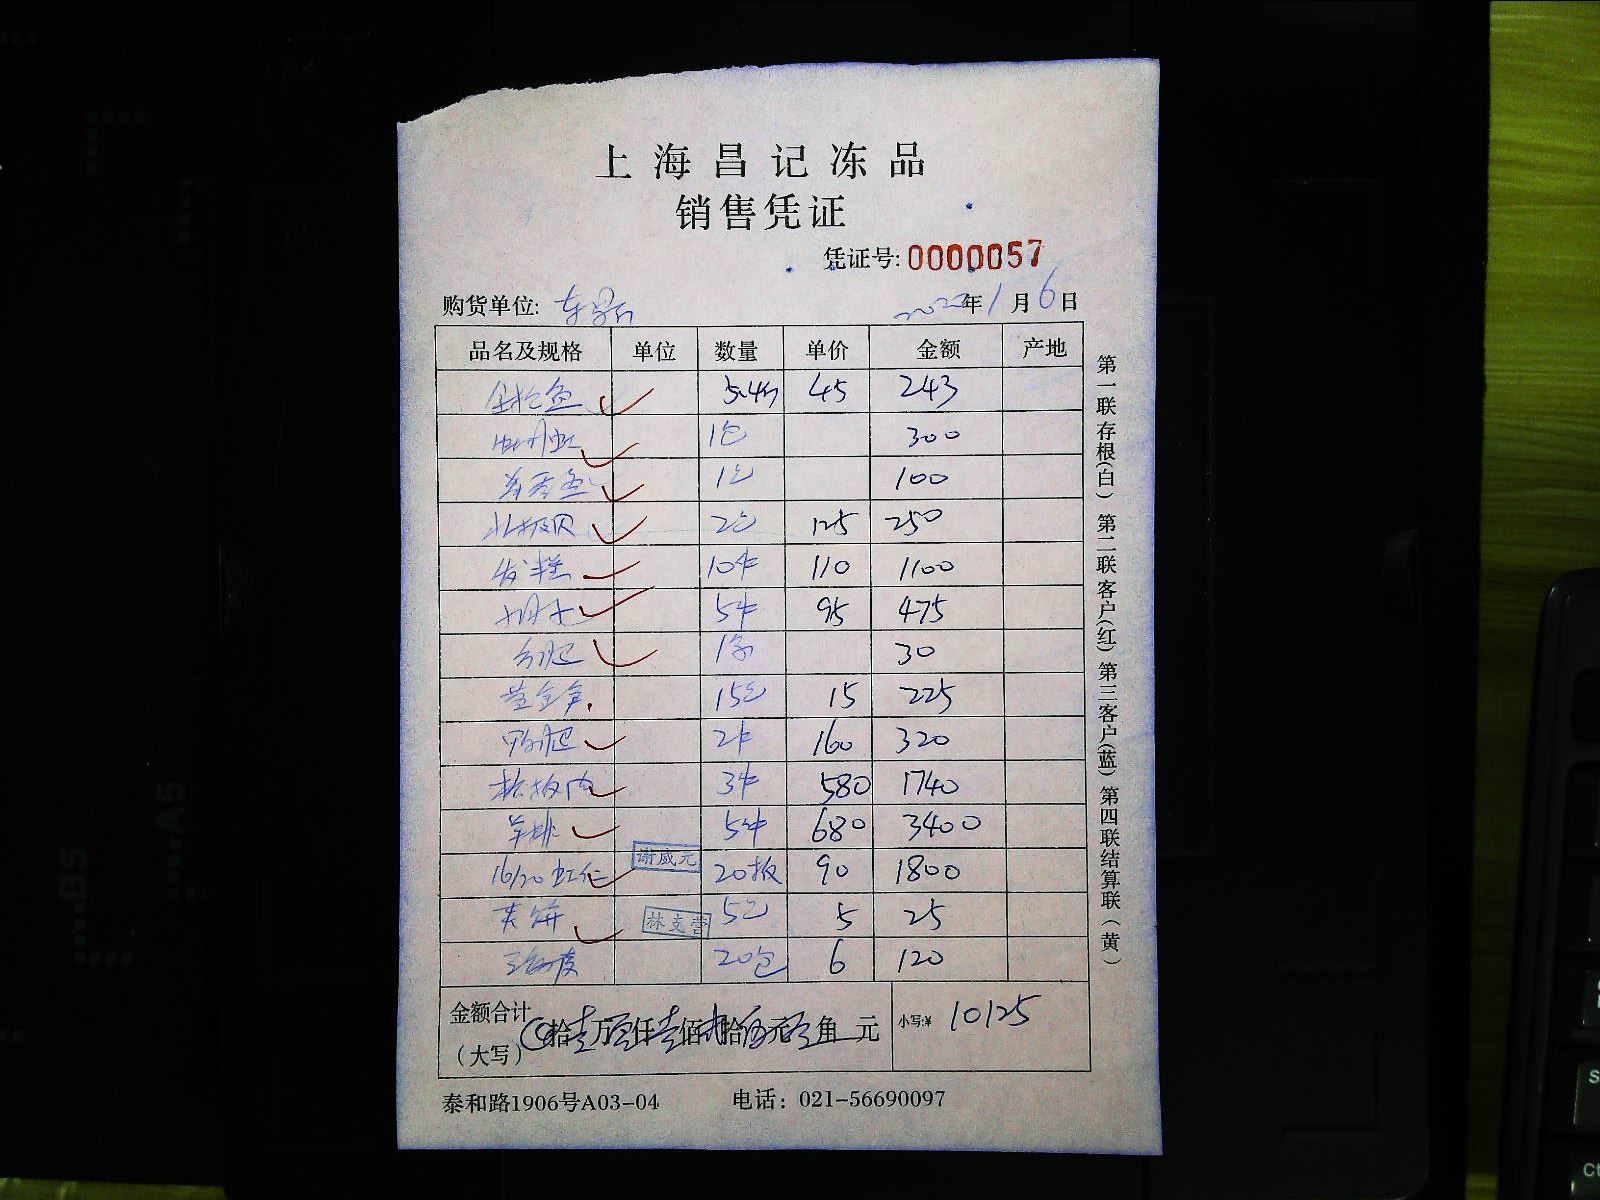 上海昌记冻品
销售凭证
凭证号: 0000057
购货单位: 2022年1月6日
品名及规格 单位 数量 单价 金额 产地
金枪鱼 5.4斤 45 243
牡丹虾 1包 300
希香鱼 1包 100
北极贝 2包 125 250
发糕 10件 110 1100
5件 95 475
1条 30
黄金 15包 15 225
鸭腿 2件 160 320
松板肉 3件 580 1740
羊排 5件 680 3400
谢成元
16/20虾仁 20板 90 1800
夹饼 5包 5 25
林支营
20包 6 120
金额合计(大写) 拾壹万零仟壹佰贰拾伍元零角 元 小写:¥ 10125
泰和路1906号A03-04 电话: 021-56690097
第一联存根(白) 第二联客户(红) 第三客户(蓝) 第四联结算联(黄)